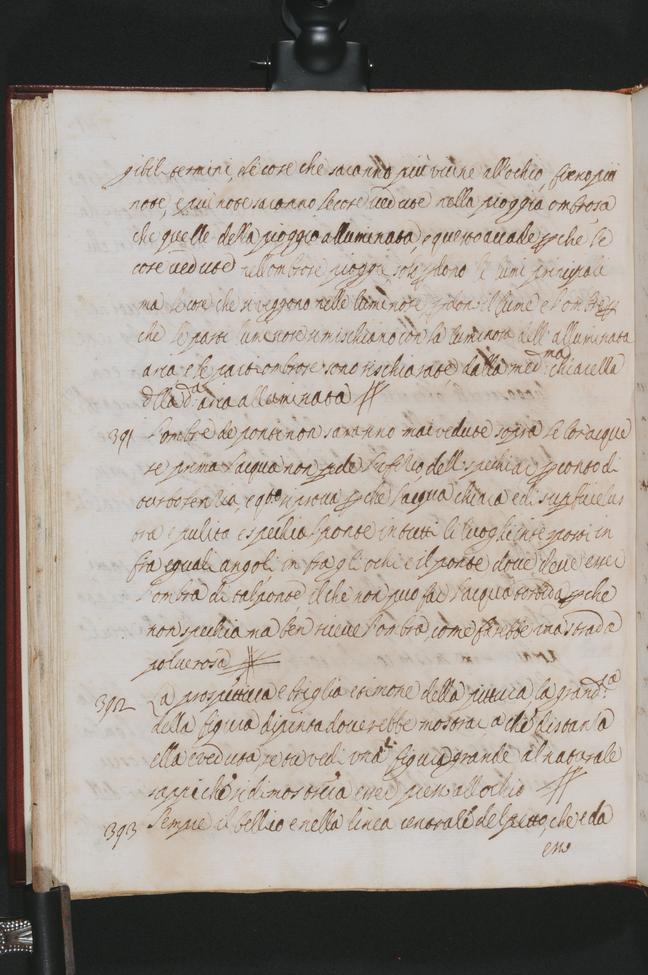 gibil termini, le cose che saranno piu vicine all'ochio, fieno piu
note, e piu note saranno le cose vedute nella pioggia ombrosa
che quelle della pioggia alluminata, e questo accade perche le
cose vedute nell'ombrose piogge sol perdono le lumi principali
ma le cose che si veggono nelle luminose perdon il lume e l'ombre per
che le parti luminose si mischiano con la luminosa dell'alluminata
aria e le parti ombrose sono rischiarate, dalla med.ma chiarella
della d.a aria alluminata
391 l'ombre de ponti non saranno mai vedute sopra le lor acque
se prima l'acqua non perde l'ufitio dell spechiare per conto di
e q.to si prova perche l'acqua chiara e di superficie lus
tra e pulita e spechia il ponte in tutti li luoghi interposti in
fra eguali angoli in fra gli ochi e il ponte dove deve esser
l'ombra di tal ponte il che non puo far l'acqua torbida perche
non spechia ma ben riceve l'ombra, come farebbe una strada
polverosa
392 La prospettiva e briglia e timone della pittura la grand.a
della figura dipinta doverebbe mostrar a che distanza
ella e veduta, se tu vedi una figura grande al naturale
sappi che si dimostra esser presso all'ochio
393 Sempre il bellico e nella linea centrale del petto, che e da
esso